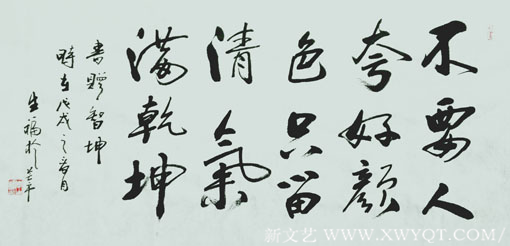 不要人
夸好颜
色只留
清氣
满乾坤
书赠智坤
時在戊戌之春月
生福於
新文艺 WWW.XWYQT.COM/